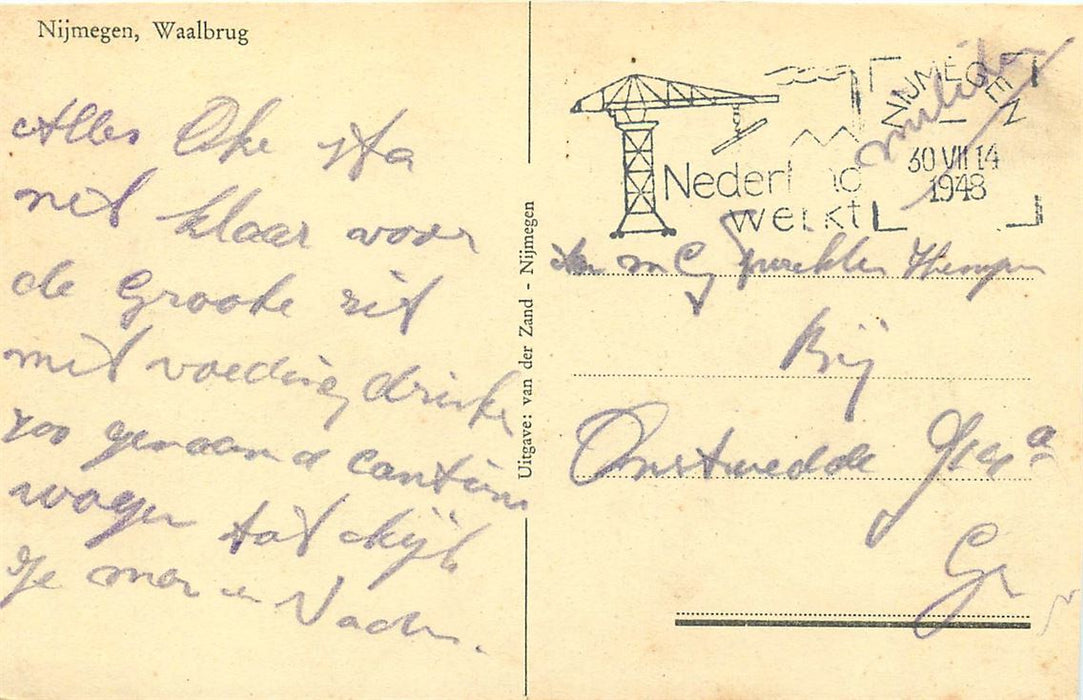 Nijmegen, Waalbrug
Alles Oke sta
net klaar voor
de Groote rit
met voeding drinke
zoo genaamd cantine
wagen tot kijk
Uitgave: van der Zand - Nijmegen
NIJMEGEN
30 VII 14
1948
Nederland
werkt
militair
Bij
Onstwedde
Gr